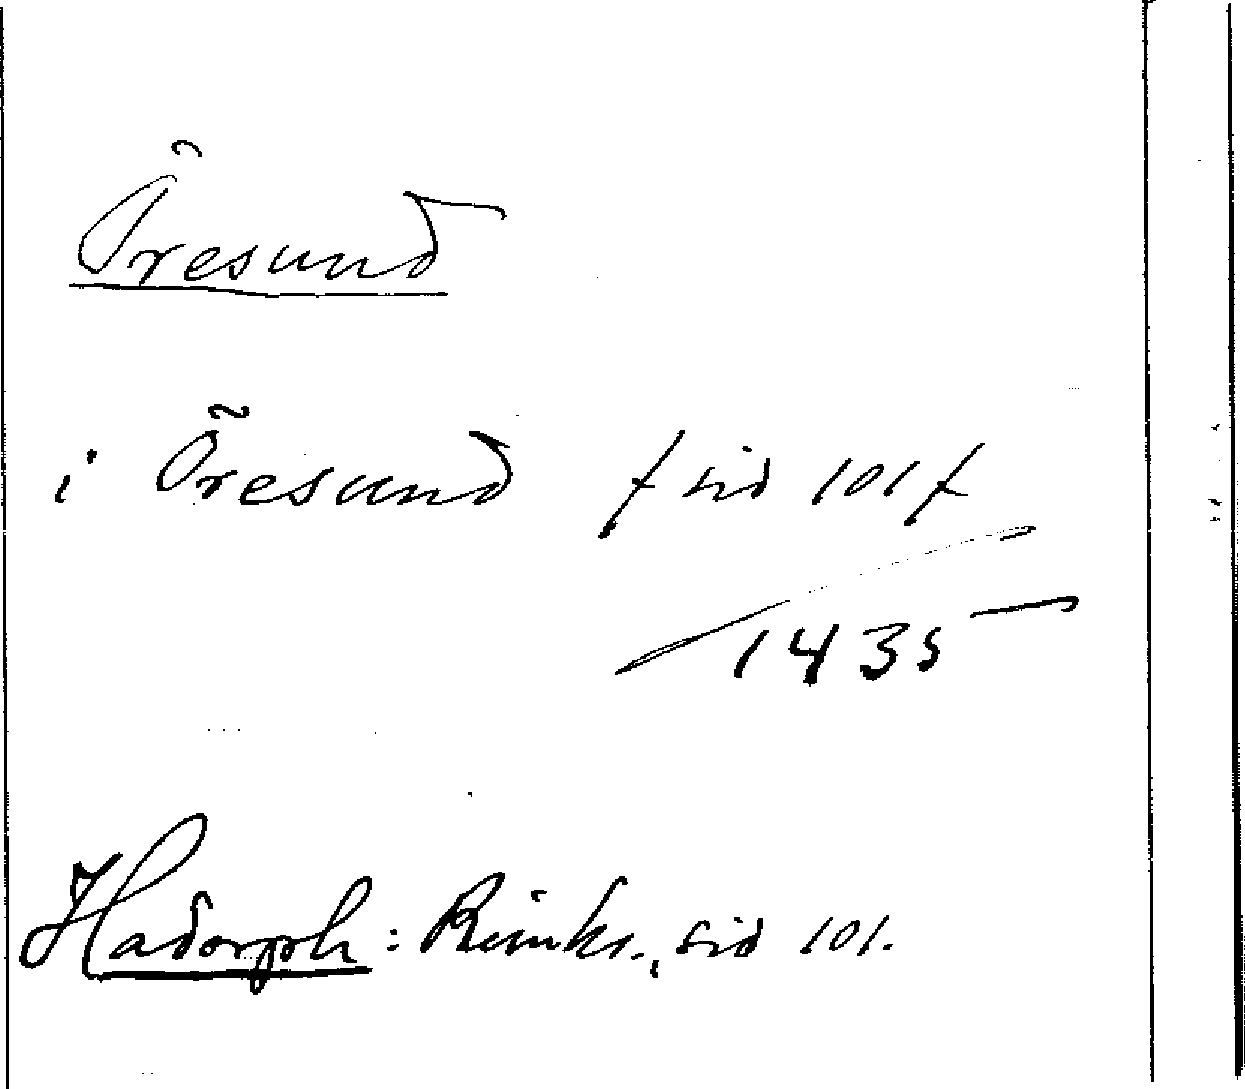 Öresund
i Öresund f sid 101 f
1435
Hadorph: Rimkr., sid 101.